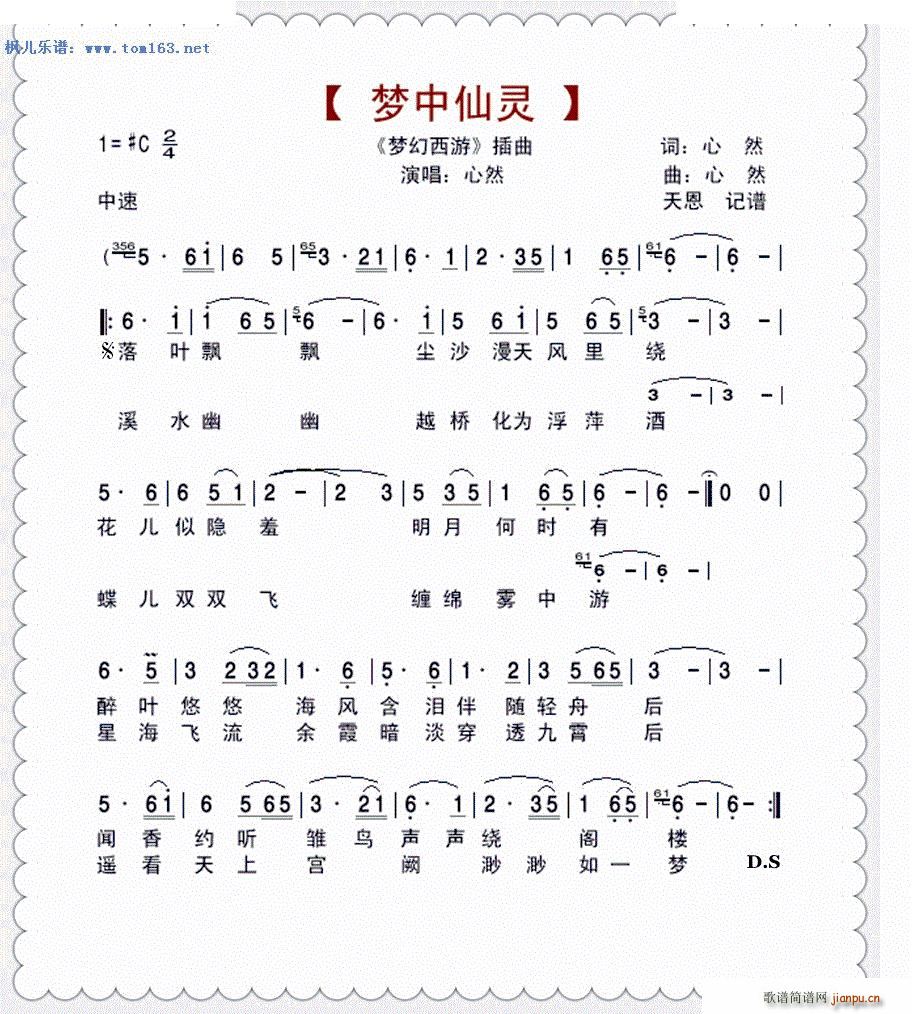 枫儿乐谱：www.tom163.net
【 梦中仙灵 】
1=#C 2/4 《梦幻西游》插曲 词：心 然
演唱：心然 曲：心 然
中速 天恩 记谱
(356 5· 6i|6 5|65 3· 21|6· 1|2· 35|1 65|61 6 -|6 -|
‖:6· i|i 65|5 6 -|6· i|5 6i|5 65|5 3 -|3 -|
𝄋落 叶 飘 飘 尘 沙 漫 天 风 里 绕
3 -|3 -|
溪 水 幽 幽 越 桥 化 为 浮 萍 酒
5· 6|6 51|2 -|2 3|5 35|1 65|6 -|6 -‖0 0|
花 儿 似 隐 羞 明 月 何 时 有
61 6 -|6 -|
蝶 儿 双 双 飞 缠 绵 雾 中 游
6· 5|3 232|1· 6|5· 6|1· 2|3 565|3 -|3 -|
醉 叶 悠 悠 海 风 含 泪 伴 随 轻 舟 后
星 海 飞 流 余 霞 暗 淡 穿 透 九 霄 后
5· 6i|6 565|3· 21|6· 1|2· 35|1 65|61 6 -|6 - :‖
闻 香 约 听 雏 鸟 声 声 绕 阁 楼
遥 看 天 上 宫 阙 渺 渺 如 一 梦 D.S
歌谱简谱网 jianpu.cn